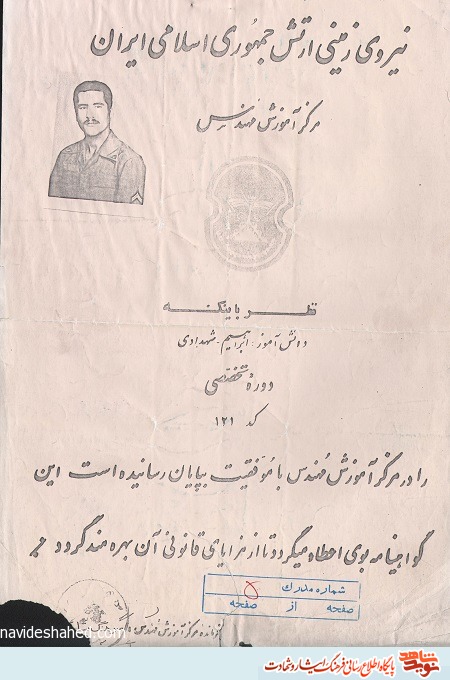 نیروی زمینی ارتش جمهوری اسلامی ایران
مرکز آموزش مهندس
نظر باینکه
دانش آموز: ابراهیم - شهدادی
دوره تخصصی
کد ۱۲۱
را در مرکز آموزش مهندس با موفقیت بپایان رسانیده است این
گواهینامه بوی اعطاء میگردد تا از مزایای قانونی آن بهره مند گردد
شماره مدرک ۵
صفحه از صفحه
فرمانده مرکز آموزش مهندس
navideshahed.com
نوید شاهد
پایگاه اطلاع رسانی فرهنگ ایثار و شهادت